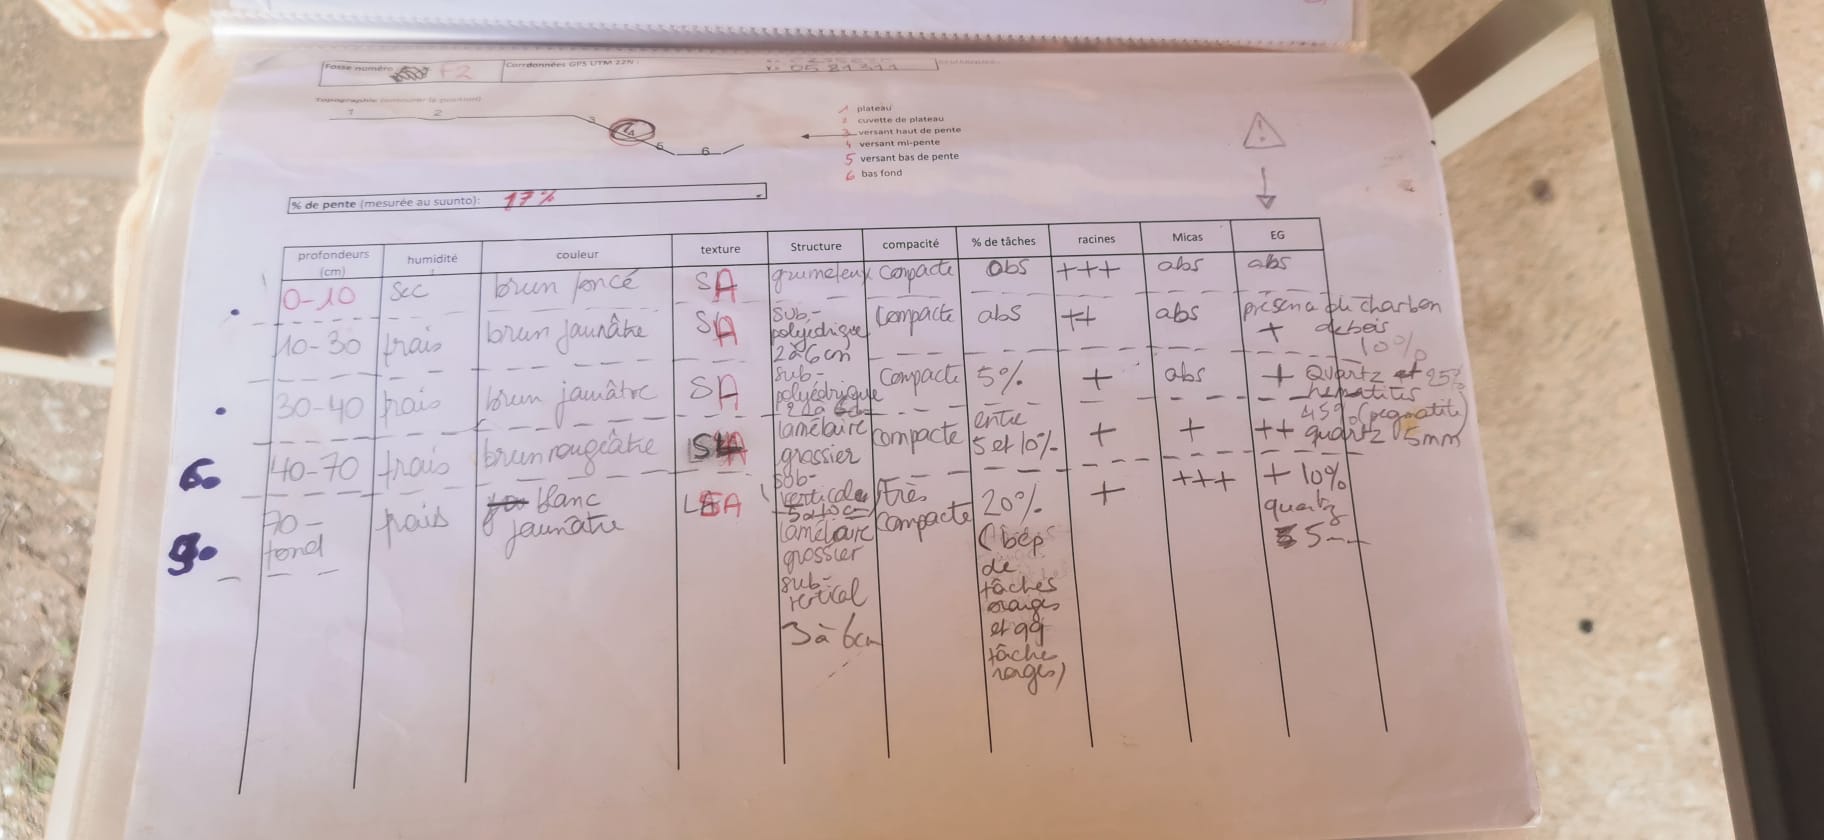 Fosse numéro F2
Corrdonnées GPS UTM 22N :
Y: 0581311
Topographie (entourer la position)
1 2 3 4 5 6
1 plateau
2 cuvette de plateau
3 versant haut de pente
4 versant mi-pente
5 versant bas de pente
6 bas fond
% de pente (mesurée au suunto): 17%
profondeurs (cm) humidité couleur texture Structure compacité % de tâches racines Micas EG
0-10 sec brun foncé SA grumeleux compacte abs +++ abs abs
10-30 frais brun jaunâtre SA sub-
polyédrique
2 à 6 cm compacte abs ++ abs présence du charbon
+ de bois
10%
30-40 frais brun jaunâtre SA sub-
polyédrique
compacte 5% + abs + Quartz et 25%
hématites
6. 40-70 frais brun rougeâtre lamélaire
grossier
sub-
verticale
compacte entre
5 et 10% + + ++ 45% (pegmatite)
quartz 5mm
9. 70-
fond frais blanc
jaunâtre LSA lamélaire
grossier
sub-
vertical
3 à 6cm
très
compacte 20%
(bcp
de
tâches
oranges
et qq
tâche
rouges)
+ +++ + 10%
quartz